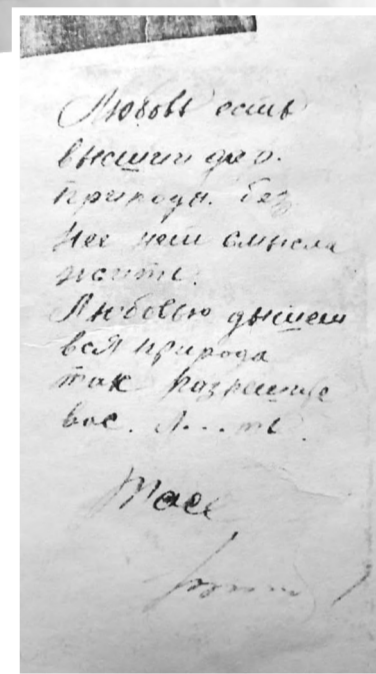 Любовь есть
высший дар
природы. без
нее нет смысла
жити.
Любовью дышет
вся природа
так разрешите
вас. л...ть
Тасе